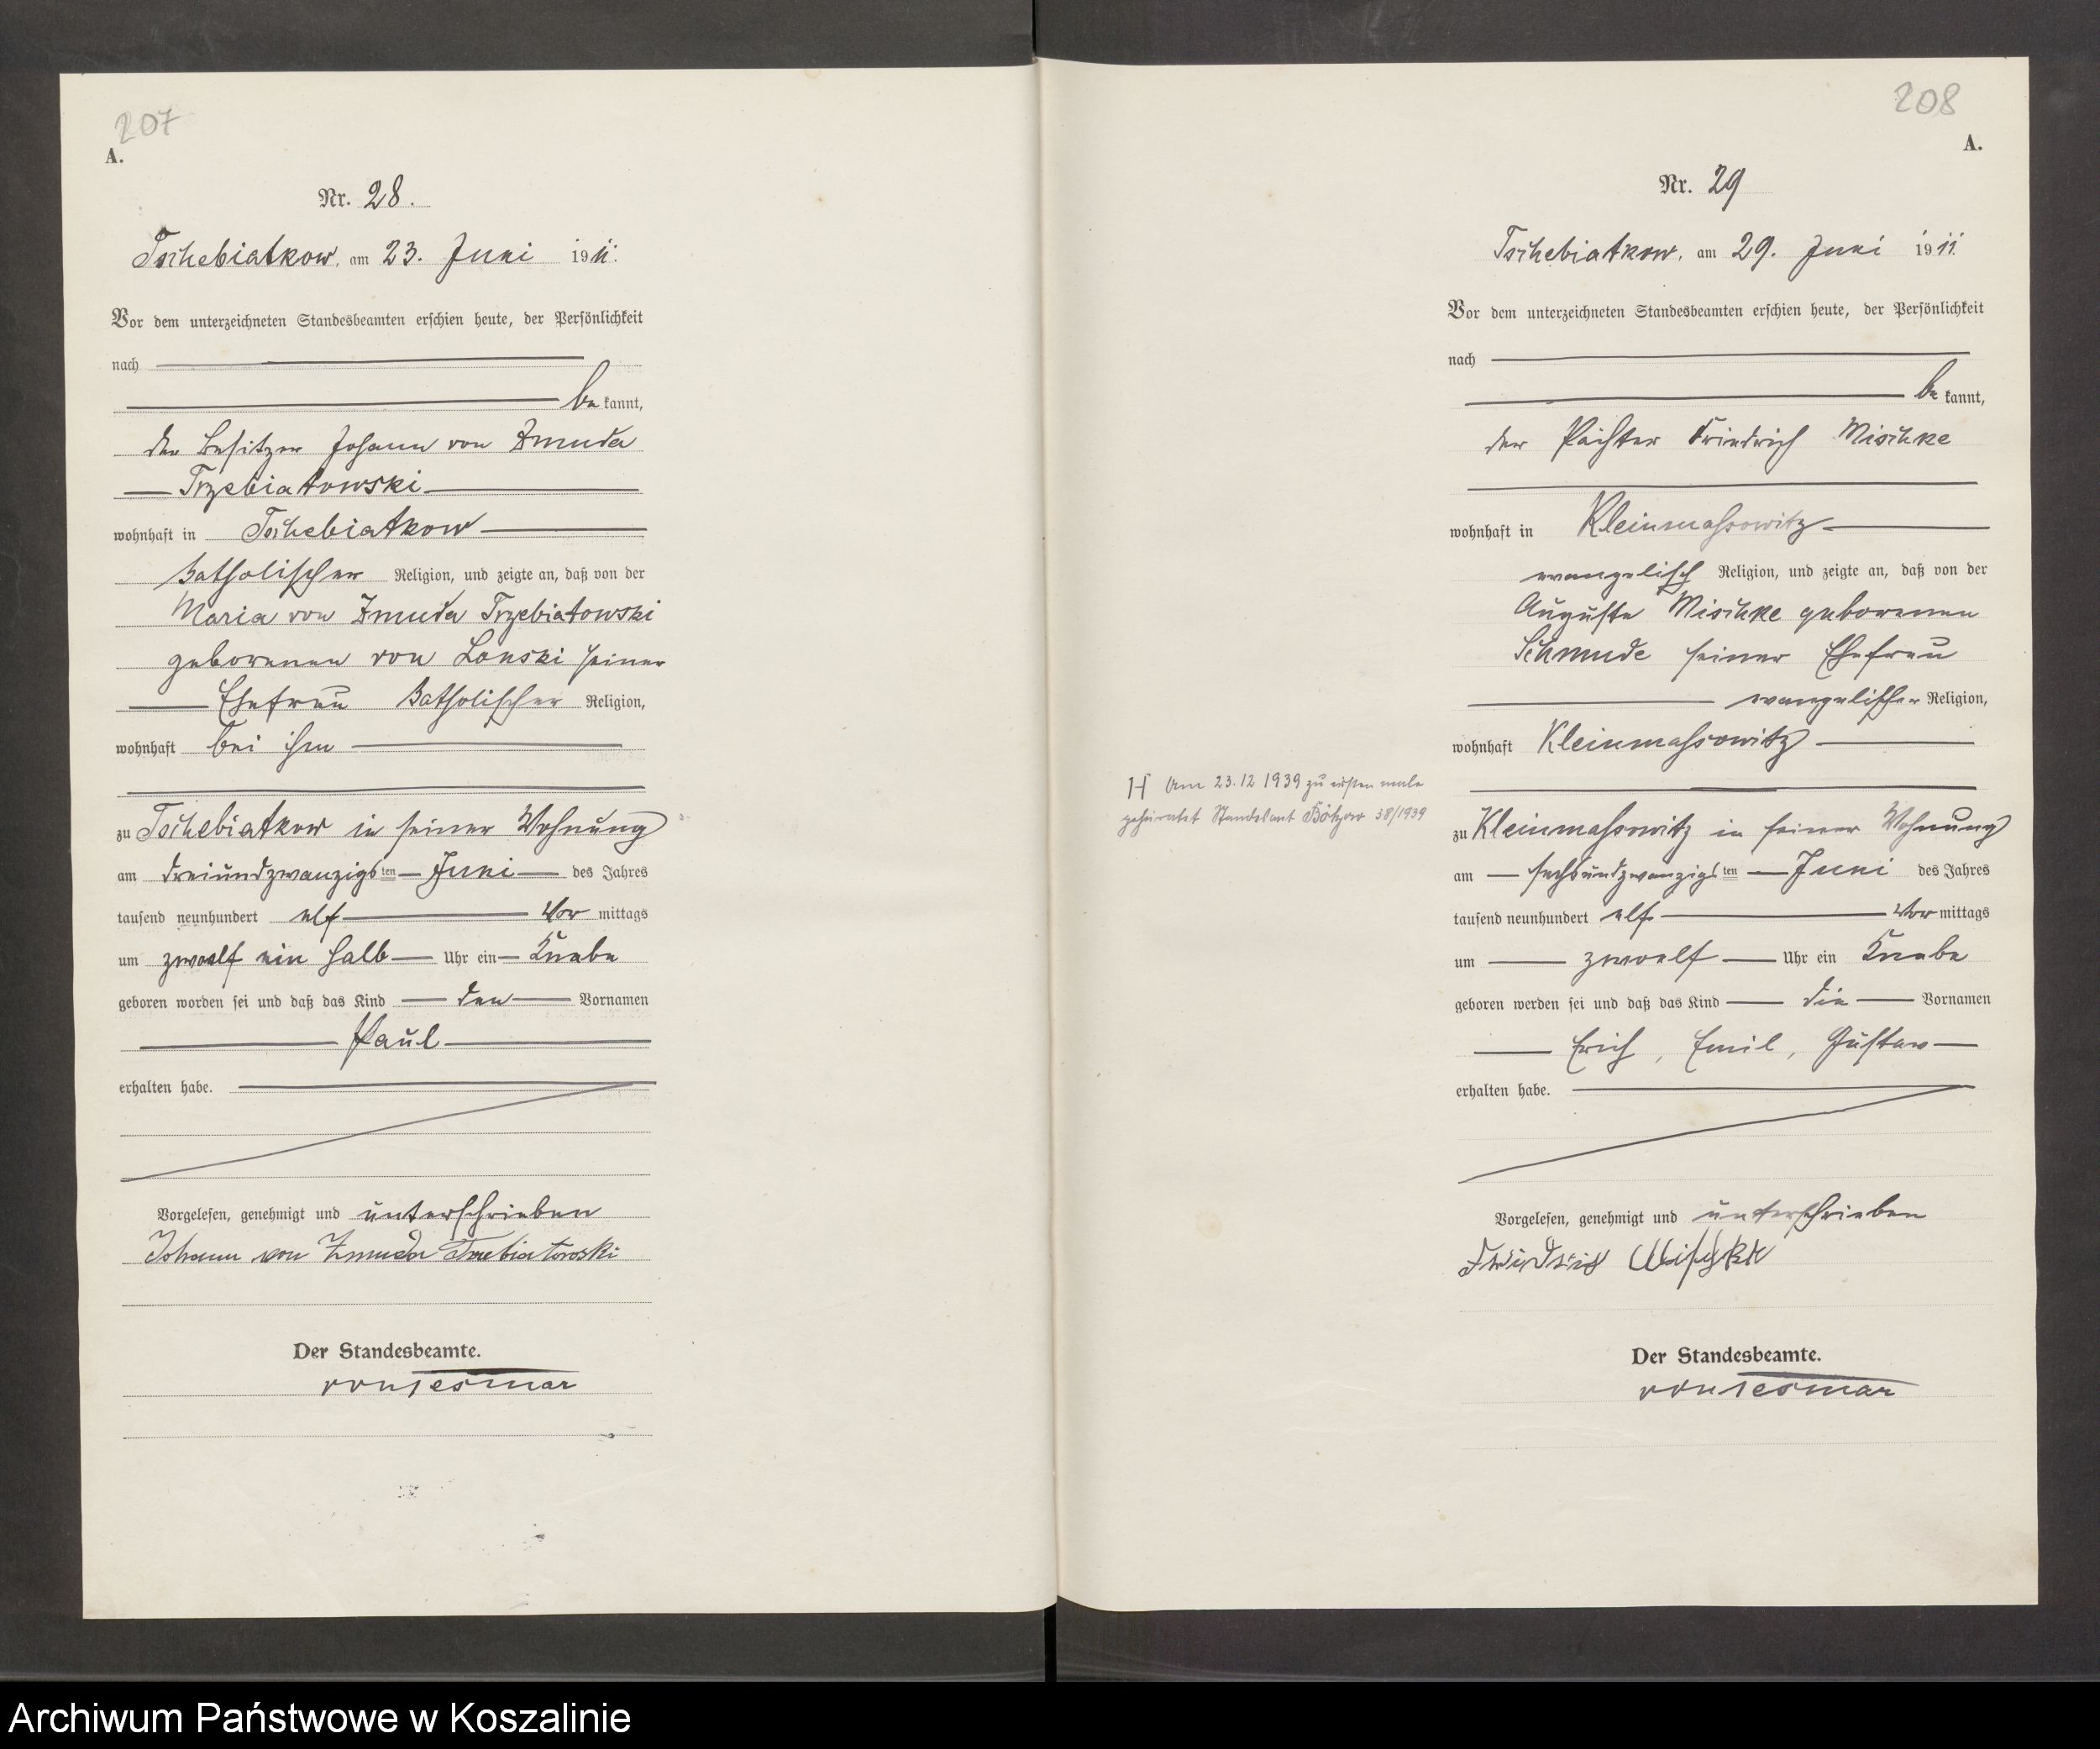 207
A.
Nr. 28.
Tschebiatkow, am 23. Juni 1911.
Vor dem unterzeichneten Standesbeamten erschien heute, der Persönlichkeit
nach
be kannt,
der Besitzer Johann von Zmuda
Trzebiatowski
wohnhaft in Tschebiatkow
katholischer Religion, und zeigte an, daß von der
Maria von Zmuda Trzebiatowski
geborenen von Lonski seiner
Ehefrau katholischer Religion,
wohnhaft bei ihm
zu Tschebiatkow in seiner Wohnung
am dreiundzwanzigsten Juni des Jahres
tausend neunhundert elf Vor mittags
um zwoelf ein halb Uhr ein Knabe
geboren worden sei und daß das Kind den Vornamen
Paul
erhalten habe.
Vorgelesen, genehmigt und unterschrieben
Johann von Zmuda Trzebiatowski
Der Standesbeamte.
von Tesmar
208
A.
Nr. 29
Tschebiatkow, am 29. Juni 1911.
Vor dem unterzeichneten Standesbeamten erschien heute, der Persönlichkeit
nach
be kannt,
der Pächter Friedrich Mischke
wohnhaft in Kleinmassowitz
evangelisch Religion, und zeigte an, daß von der
Auguste Mischke geborenen
Schmude seiner Ehefrau
evangelischer Religion,
wohnhaft Kleinmassowitz
zu Kleinmassowitz in seiner Wohnung
am sechsundzwanzigsten Juni des Jahres
tausend neunhundert elf Vor mittags
um zwoelf Uhr ein Knabe
geboren worden sei und daß das Kind die Vornamen
Erich, Emil, Gustav
erhalten habe.
Vorgelesen, genehmigt und unterschrieben
Friedrich Mischke
Der Standesbeamte.
von Tesmar
Am 23.12 1939 zu ersten male
geheiratet Standesamt 38/1939
Archiwum Państwowe w Koszalinie